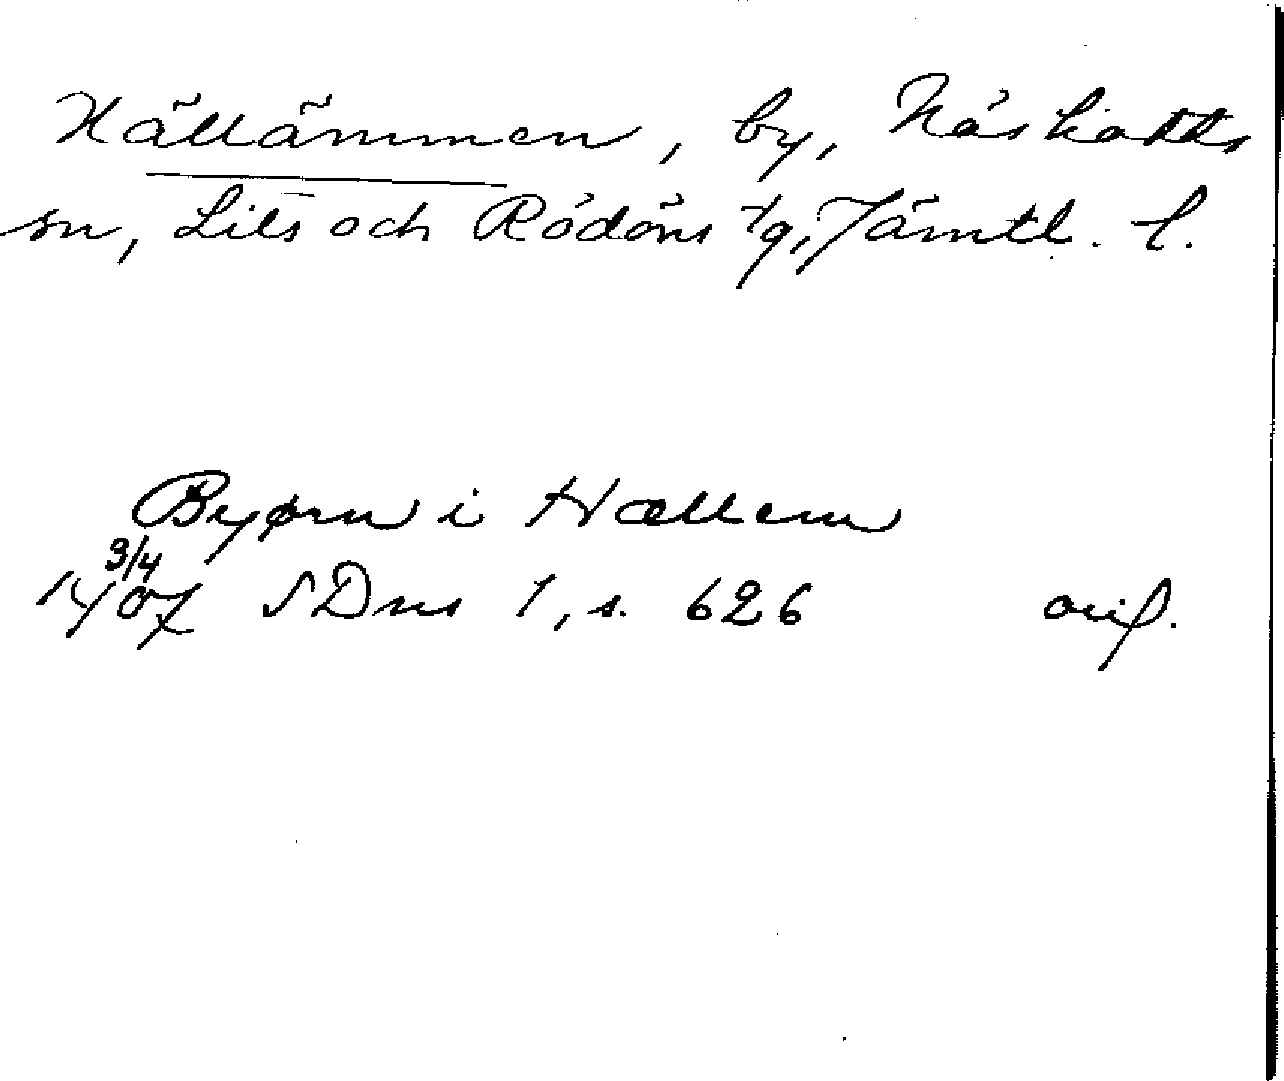 Hällämmen, by, Näskotts
sn, Lits och Rödöns tg, Jämtl. l.
Byørn i Hællem
3/4
1407 SDns 1, s. 626 orig.